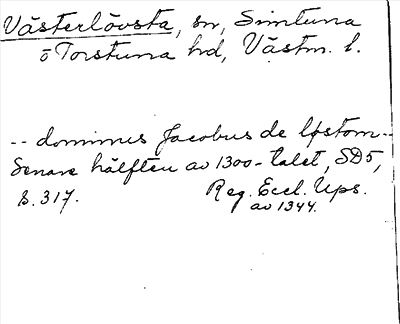 Västerlövsta, sn, Simtuna
o Torstuna hd, Västm. l.
-- dominus Jacobus de løstom--
Senare hälften av 1300-talet, SD5,
s. 317. Reg. Eccl. Ups.
av 1344.